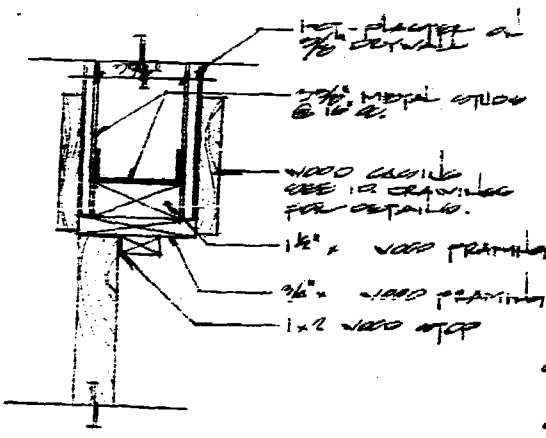 PLASTER ON
5/8" DRYWALL
METAL STUDS
@ 16" OC.
WOOD CASING
SEE ID DRAWINGS
FOR DETAILS.
1 1/2" x WOOD FRAMING
3/4" x WOOD FRAMING
1x2 WOOD STOP